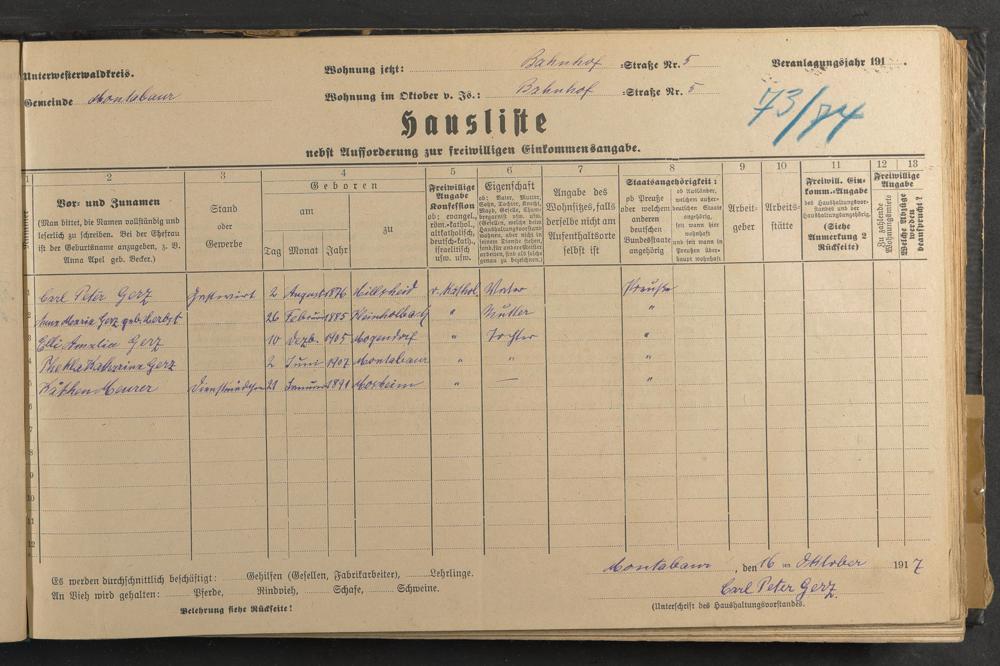 Unterwesterwaldkreis.
Wohnung jetzt: Bahnhof =Straße Nr. 5
Veranlagungsjahr 191 .
Gemeinde Montabaur
Wohnung im Oktober v. Js.: Bahnhof =Straße Nr. 5
73/74
Hausliste
nebst Aufforderung zur freiwilligen Einkommensangabe.
1 2 3 4 5 6 7 8 9 10 11 12 13
Vor- und Zunamen
(Man bittet, die Namen vollständig und
leserlich zu schreiben. Bei der Ehefrau
ist der Geburtsname anzugeben, z. B.
Anna Apel geb. Becker.)
Stand
oder
Gewerbe
Geboren
am
zu
Tag Monat Jahr
Freiwillige
Angabe
Konfession
ob: evangel.,
röm.-kathol.,
altkatholisch,
deutsch-kath.,
israelitisch
usw. usw.
Eigenschaft
ob: Vater, Mutter,
Sohn, Tochter, Knecht,
Magd, Geselle,
Angabe des
Wohnsitzes, falls
derselbe nicht am
Aufenthaltsorte
selbst ist
Staatsangehörigkeit:
ob Preuße
oder welchem
anderen
deutschen
Bundesstaate
angehörig
ob Ausländer,
welchem außer-
deutschen Staate
angehörig,
seit wann hier
wohnhaft
und seit wann in
Preußen über-
haupt wohnhaft
Arbeit-
geber
Arbeits-
stätte
Freiwill. Ein-
komm.-Angabe
des Haushaltungsvor-
standes und der
Haushaltungsangehörig.
(Siehe
Anmerkung 2
Rückseite)
Freiwillige
Angabe
Zu zahlende
Wohnungsmiete
Welche Abzüge
werden
beansprucht?
1 Carl Peter Gerz Gastwirt 2 August 1876 Hillscheid r. Kathol. Vater Preuße
2 Anna Maria Gerz geb. Herbst 26 Februar 1885 Kleinholbach " Mutter "
3 Elli Amalia Gerz 10 Dezb. 1905 Mogendorf " Tochter "
4 Thekla Katharina Gerz 2 Juni 1907 Montabaur " " "
5 Käthen Meurer Dienstmädchen 21 Januar 1891 " — "
6
7
8
9
10
11
12
Es werden durchschnittlich beschäftigt: Gehilfen (Gesellen, Fabrikarbeiter), Lehrlinge.
An Vieh wird gehalten: Pferde, Rindvieh, Schafe, Schweine.
Belehrung siehe Rückseite!
Montabaur, den 16 ten Oktober 1917
Carl Peter Gerz
(Unterschrift des Haushaltungsvorstandes.